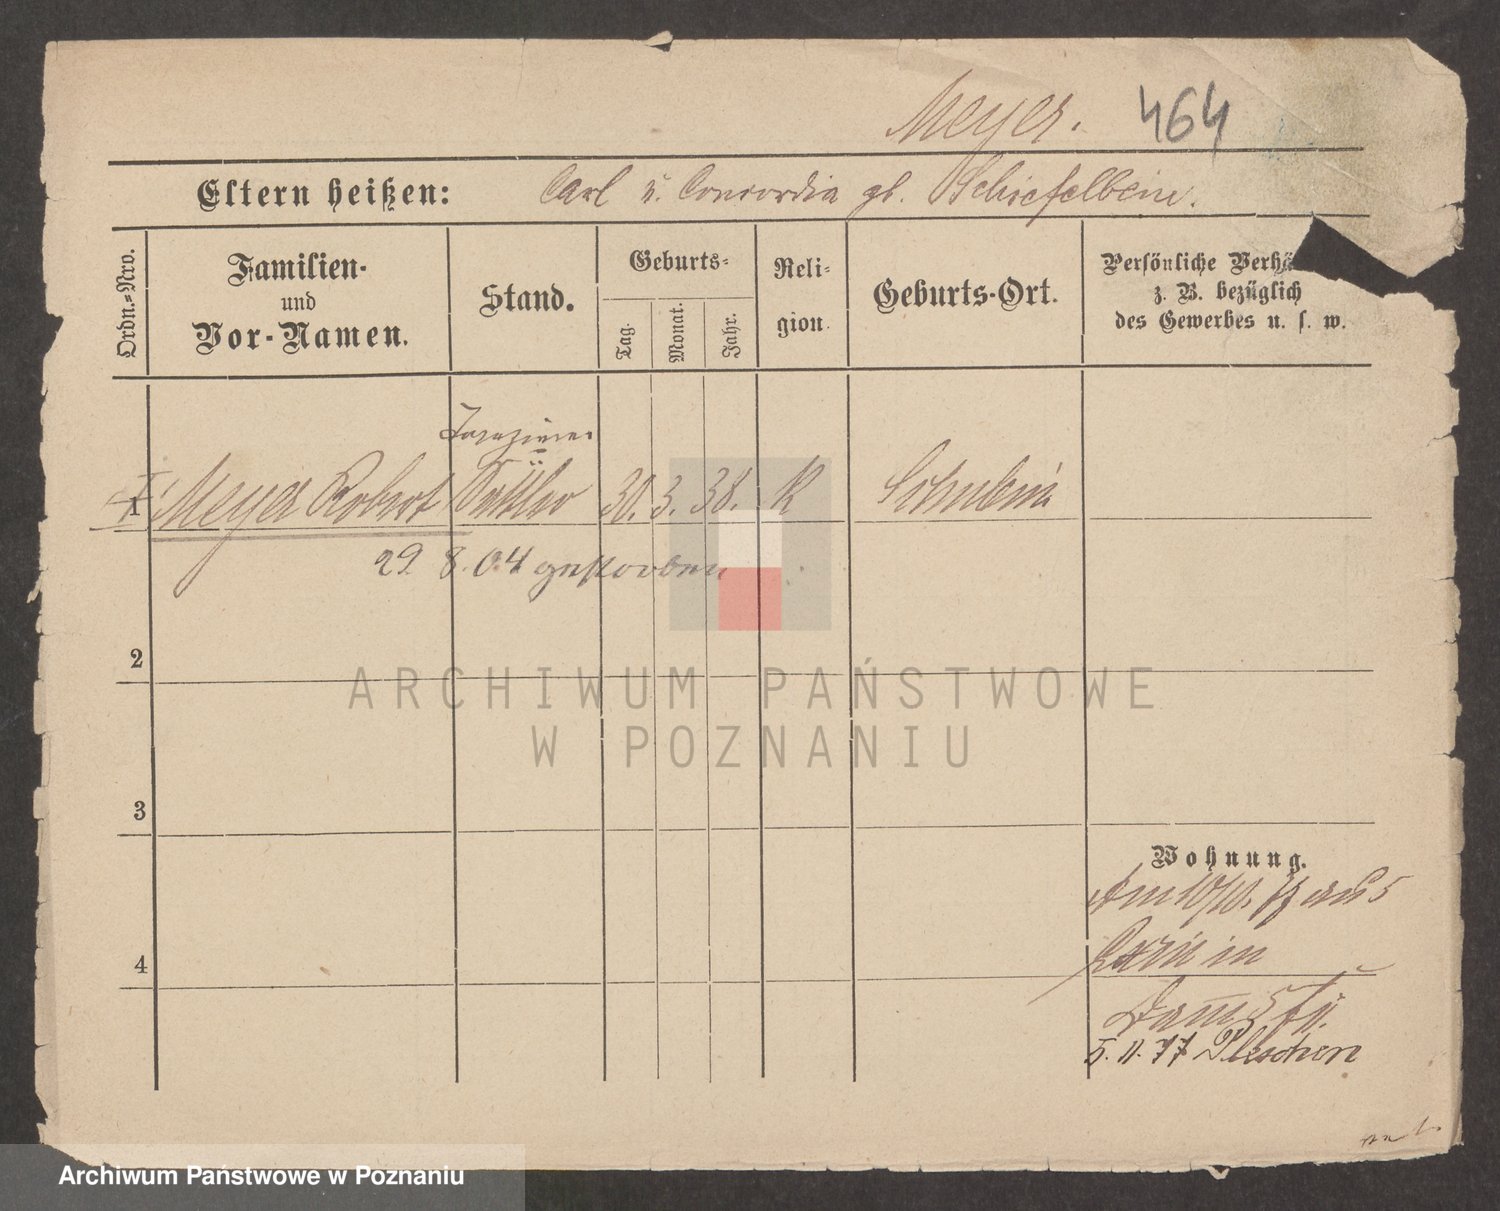 Meyer. 464
Eltern heißen: Carl u. Concordia gb. Schiefelbein.
Ordn.=Nro.
Familien-
und
Vor-Namen.
Stand.
Geburts=
Tag.
Monat.
Jahr.
Reli=
gion
Geburts-Ort.
Persönliche Verhä
z. B. bezüglich
des Gewerbes u. s. w.
1 Meyer Robert Sattler 30. 3. 38. K Schubin
29. 8. 04 gestorben
2
3
4
Wohnung.
Am 10/10. 77 aus
Exin in
5. 11. 77 Pleschen
ARCHIWUM PAŃSTWOWE
W POZNANIU
Archiwum Państwowe w Poznaniu